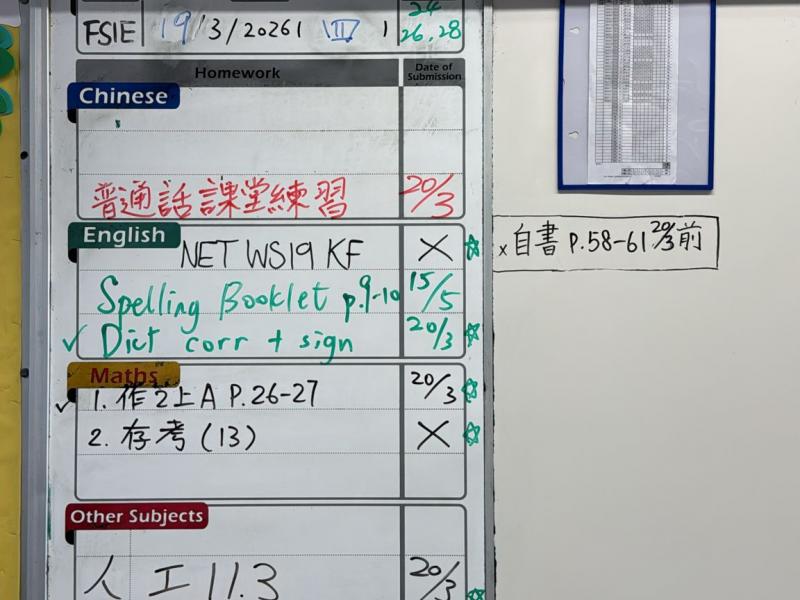 24
FSIE 19/3/2026 | III | 26,28
Homework Date of Submission
Chinese
普通話課堂練習 20/3
English
NET WS19 KF ×
Spelling Booklet p.9-10 15/5
✓ Dict corr + sign 20/3
Maths
✓ 1. 作2上A P.26-27 20/3
2. 存考 (13) ×
Other Subjects
人工11.3 20/3
× 自書 P.58-61 20/3前